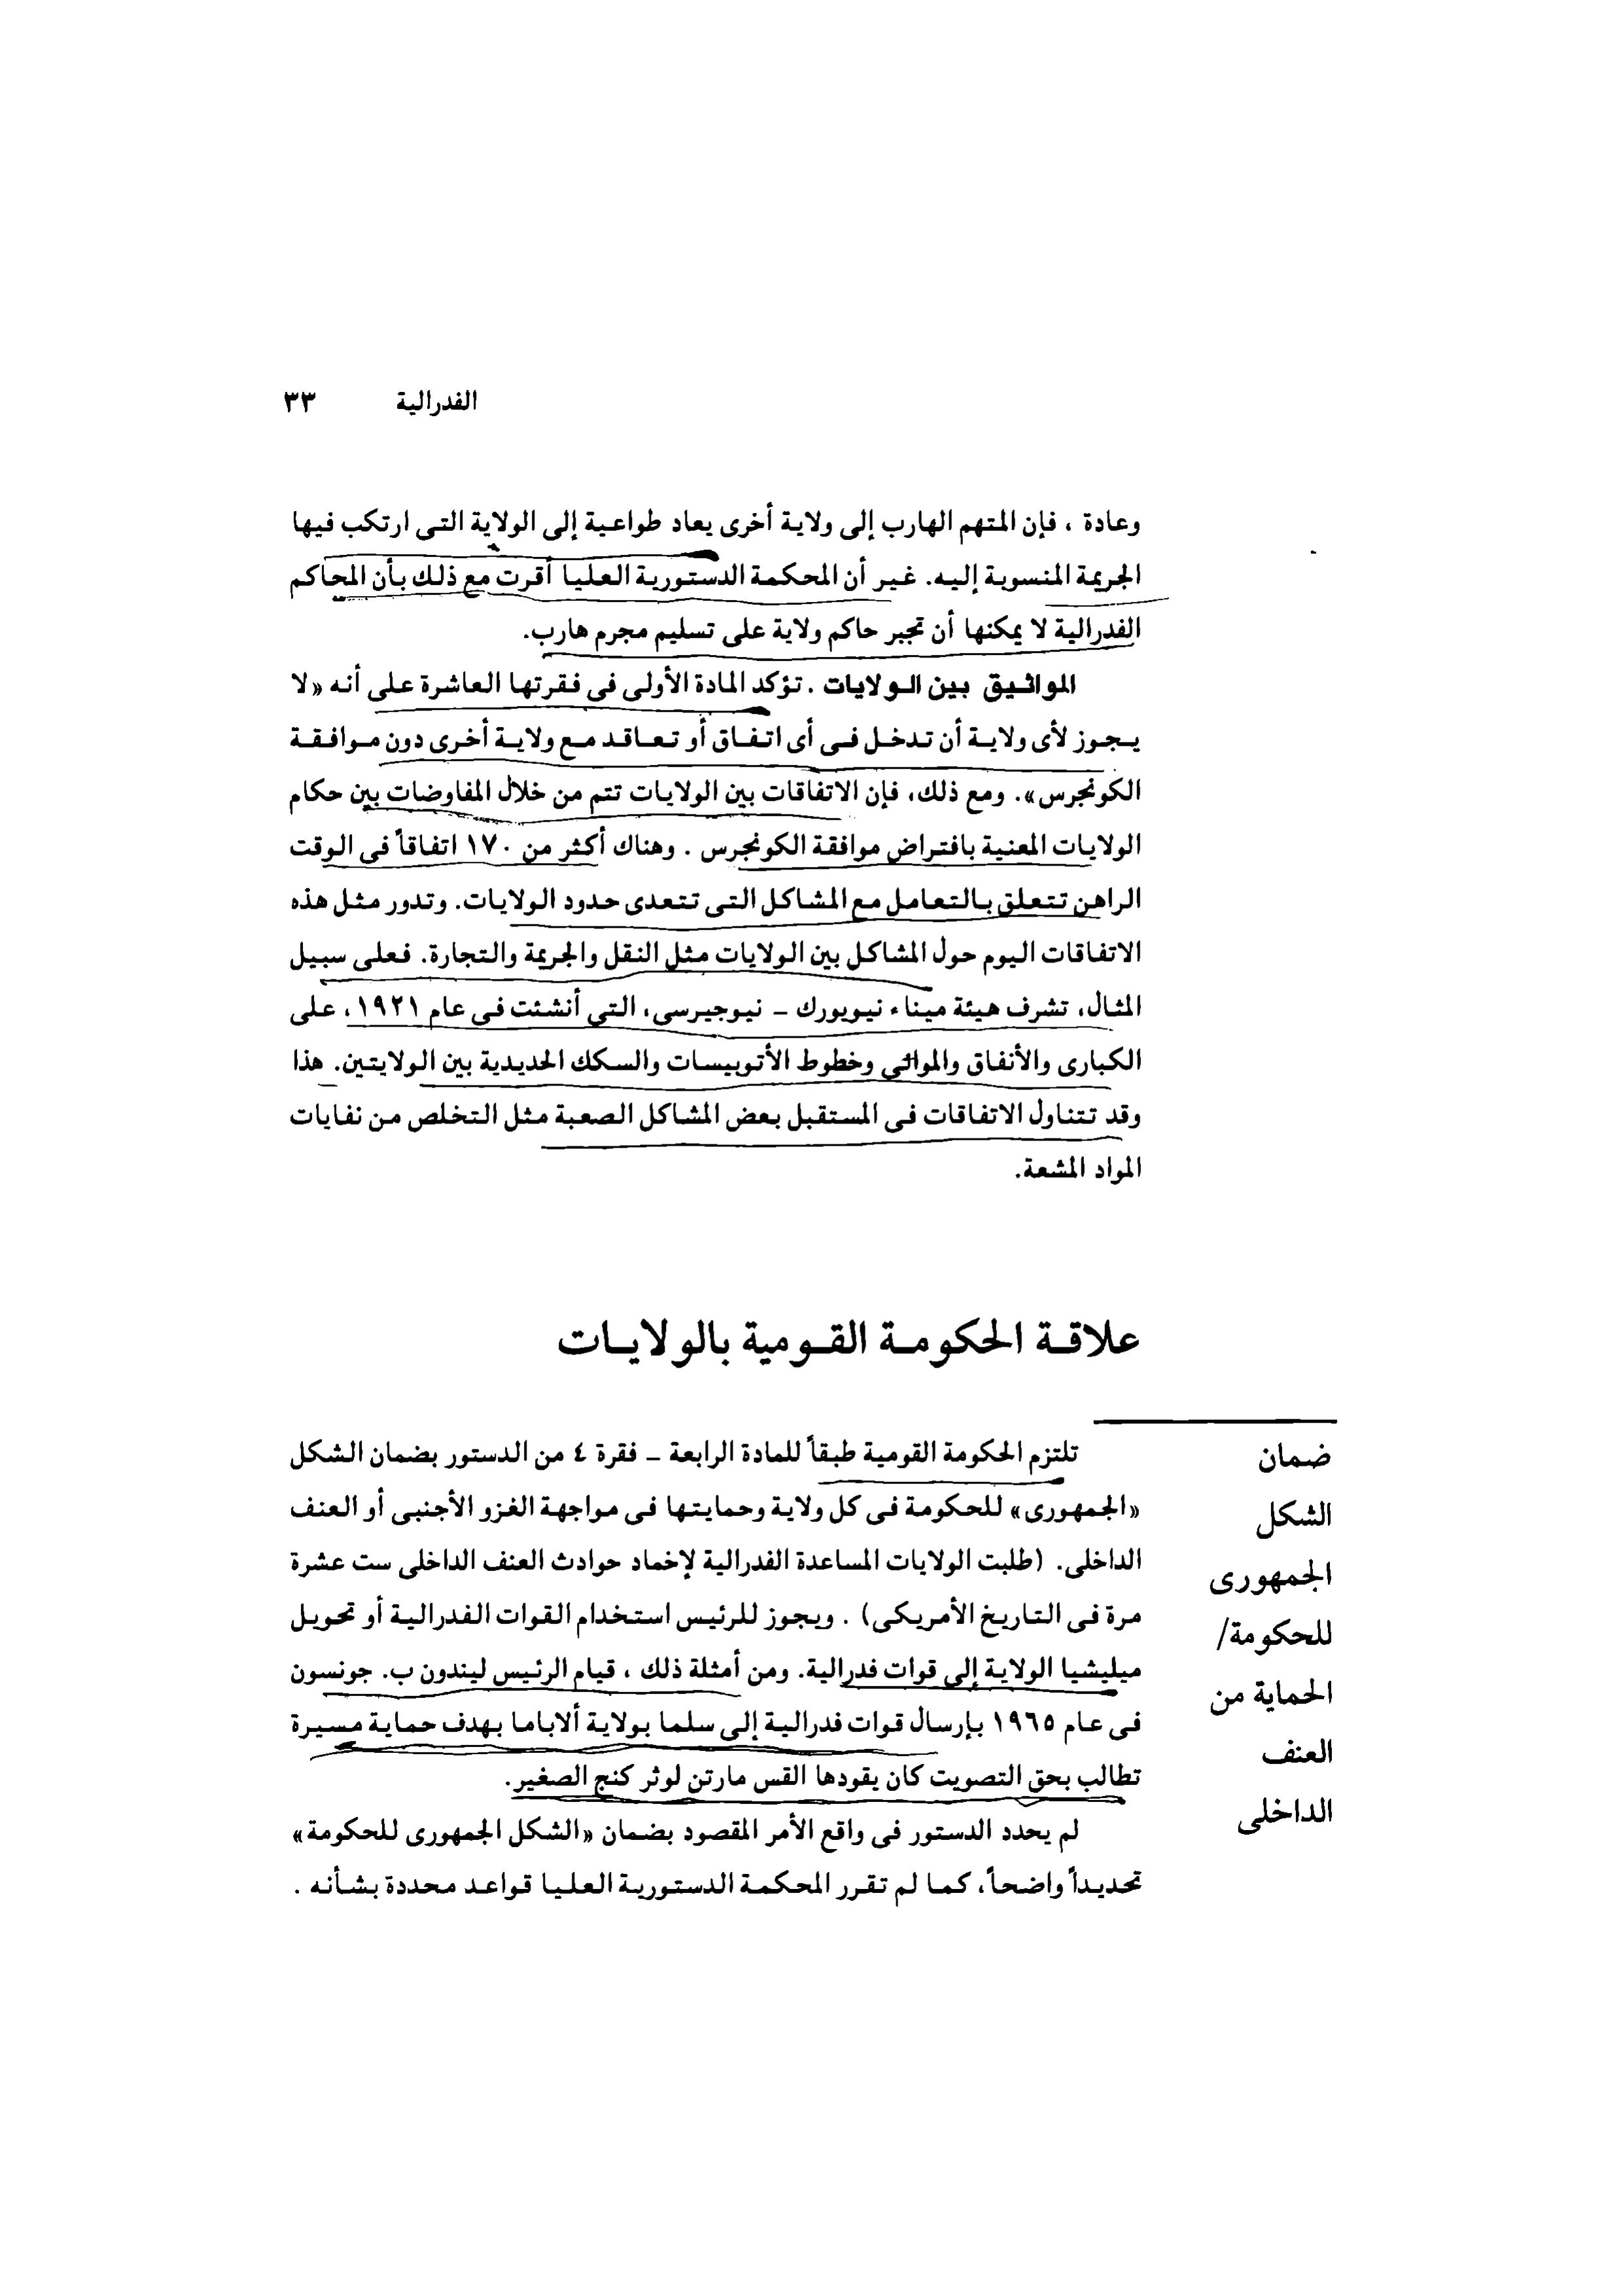 الفدرالية ٣٣
وعادة ، فإن المتهم الهارب إلى ولاية أخرى يعاد طواعية إلى الولاية التى ارتكب فيها
الجريمة المنسوبة إليه. غير أن المحكمة الدستورية العليا أقرت مع ذلك بأن المحاكم
الفدرالية لا يمكنها أن تجبر حاكم ولاية على تسليم مجرم هارب.
المواثيق بين الولايات . تؤكد المادة الأولى فى فقرتها العاشرة على أنه «لا
يجوز لأى ولاية أن تدخل فى أى اتفاق أو تعاقد مع ولاية أخرى دون موافقة
الكونجرس». ومع ذلك، فإن الاتفاقات بين الولايات تتم من خلال المفاوضات بين حكام
الولايات المعنية بافتراض موافقة الكونجرس . وهناك أكثر من ١٧٠ اتفاقاً فى الوقت
الراهن تتعلق بالتعامل مع المشاكل التى تتعدى حدود الولايات. وتدور مثل هذه
الاتفاقات اليوم حول المشاكل بين الولايات مثل النقل والجريمة والتجارة. فعلى سبيل
المثال، تشرف هيئة ميناء نيويورك - نيوجيرسى، التى أنشئت فى عام ١٩٢١، على
الكبارى والأنفاق والموانى وخطوط الأتوبيسات والسكك الحديدية بين الولايتين. هذا
وقد تتناول الاتفاقات فى المستقبل بعض المشاكل الصعبة مثل التخلص من نفايات
المواد المشعة.
علاقة الحكومة القومية بالولايات
ضمان
الشكل
الجمهورى
للحكومة/
الحماية من
العنف
الداخلى
تلتزم الحكومة القومية طبقاً للمادة الرابعة - فقرة ٤ من الدستور بضمان الشكل
«الجمهورى» للحكومة فى كل ولاية وحمايتها فى مواجهة الغزو الأجنبى أو العنف
الداخلى. (طلبت الولايات المساعدة الفدرالية لإخماد حوادث العنف الداخلى ست عشرة
مرة فى التاريخ الأمريكى) . ويجوز للرئيس استخدام القوات الفدرالية أو تحويل
ميليشيا الولاية إلى قوات فدرالية. ومن أمثلة ذلك ، قيام الرئيس ليندون ب. جونسون
فى عام ١٩٦٥ بإرسال قوات فدرالية إلى سلما بولاية ألاباما بهدف حماية مسيرة
تطالب بحق التصويت كان يقودها القس مارتن لوثر كنج الصغير.
لم يحدد الدستور فى واقع الأمر المقصود بضمان «الشكل الجمهورى للحكومة»
تحديداً واضحاً، كما لم تقرر المحكمة الدستورية العليا قواعد محددة بشأنه .